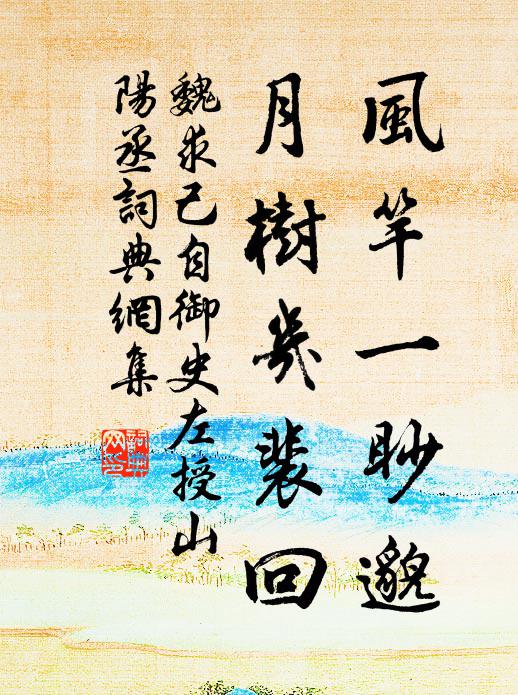 風竿一眇邈
月樹幾裴回
魏求己自御史左授山
陽丞詞典網集